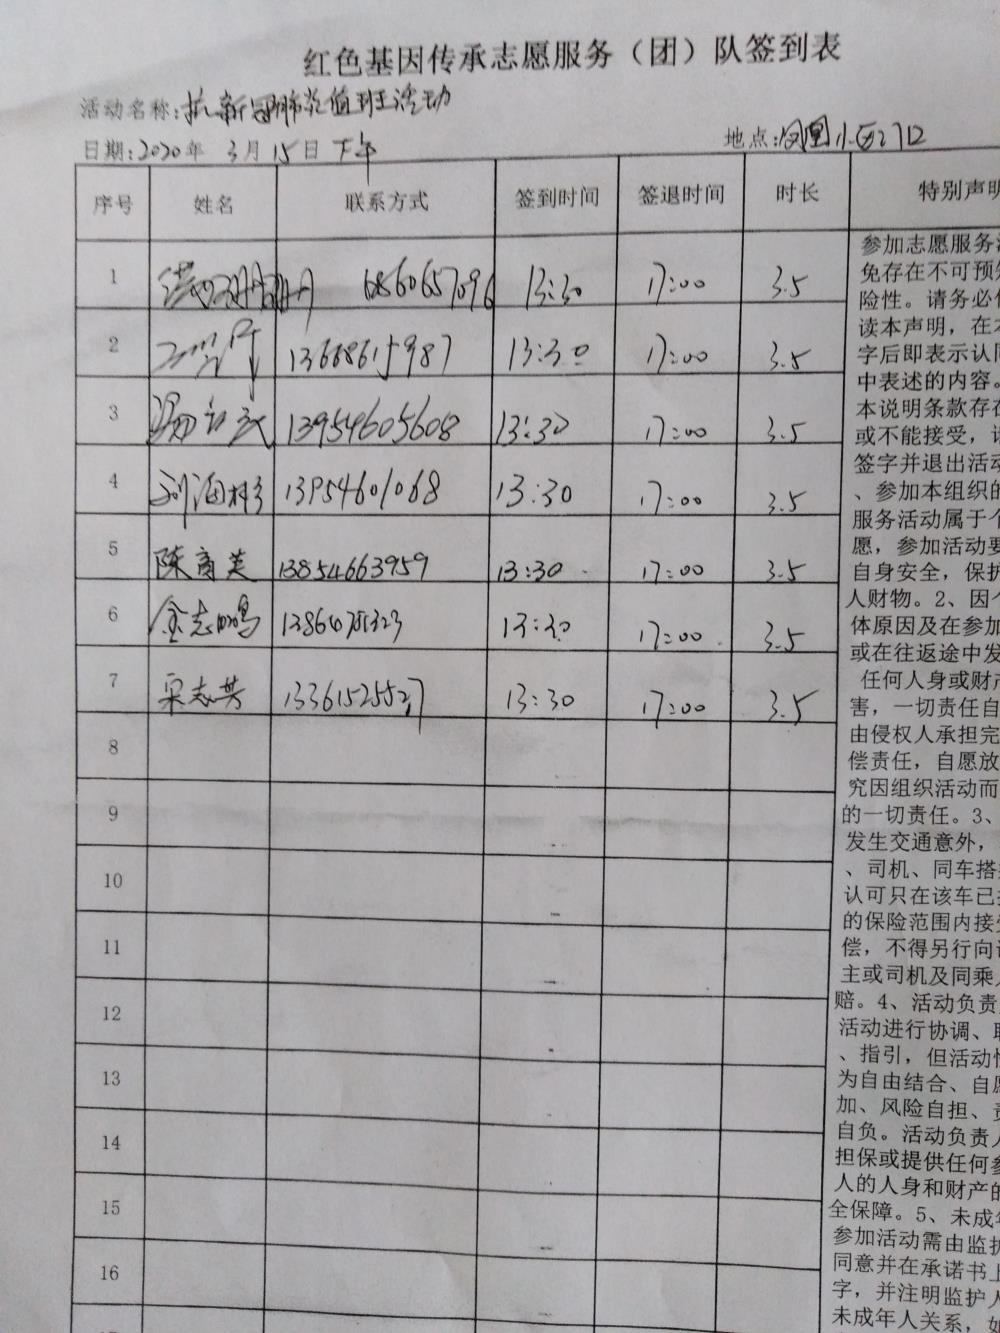 红色基因传承志愿服务（团）队签到表
活动名称:抗新冠肺炎值班活动
日期:2020年 3月 15日 下午 地点:凤凰小区门口
序号 姓名 联系方式 签到时间 签退时间 时长 特别声明
1 13:30 17:00 3.5
2 13668615987 13:30 17:00 3.5
3 13954605608 13:30 17:00 3.5
4 刘海彬 13954601068 13:30 17:00 3.5
5 陈育英 13854663959 13:30 17:00 3.5
6 金志鸣 13:30 17:00 3.5
7 宋志芳 13361525527 13:30 17:00 3.5
8
9
10
11
12
13
14
15
16
参加志愿服务活
免存在不可预知
险性。请务必仔
读本声明，在本
字后即表示认同
中表述的内容。
本说明条款存在
或不能接受，请
签字并退出活动
、参加本组织的
服务活动属于个
愿，参加活动要
自身安全，保护
人财物。2、因个
体原因及在参加
或在往返途中发
任何人身或财产
害，一切责任自
由侵权人承担完
偿责任，自愿放
究因组织活动而
的一切责任。3、
发生交通意外，
、司机、同车搭
认可只在该车已
的保险范围内接受
偿，不得另行向
主或司机及同乘人
赔。4、活动负责
活动进行协调、联
、指引，但活动性
为自由结合、自愿
加、风险自担、责
自负。活动负责人
担保或提供任何参
人的人身和财产的
全保障。5、未成年
参加活动需由监护
同意并在承诺书上
字，并注明监护人
未成年人关系，如